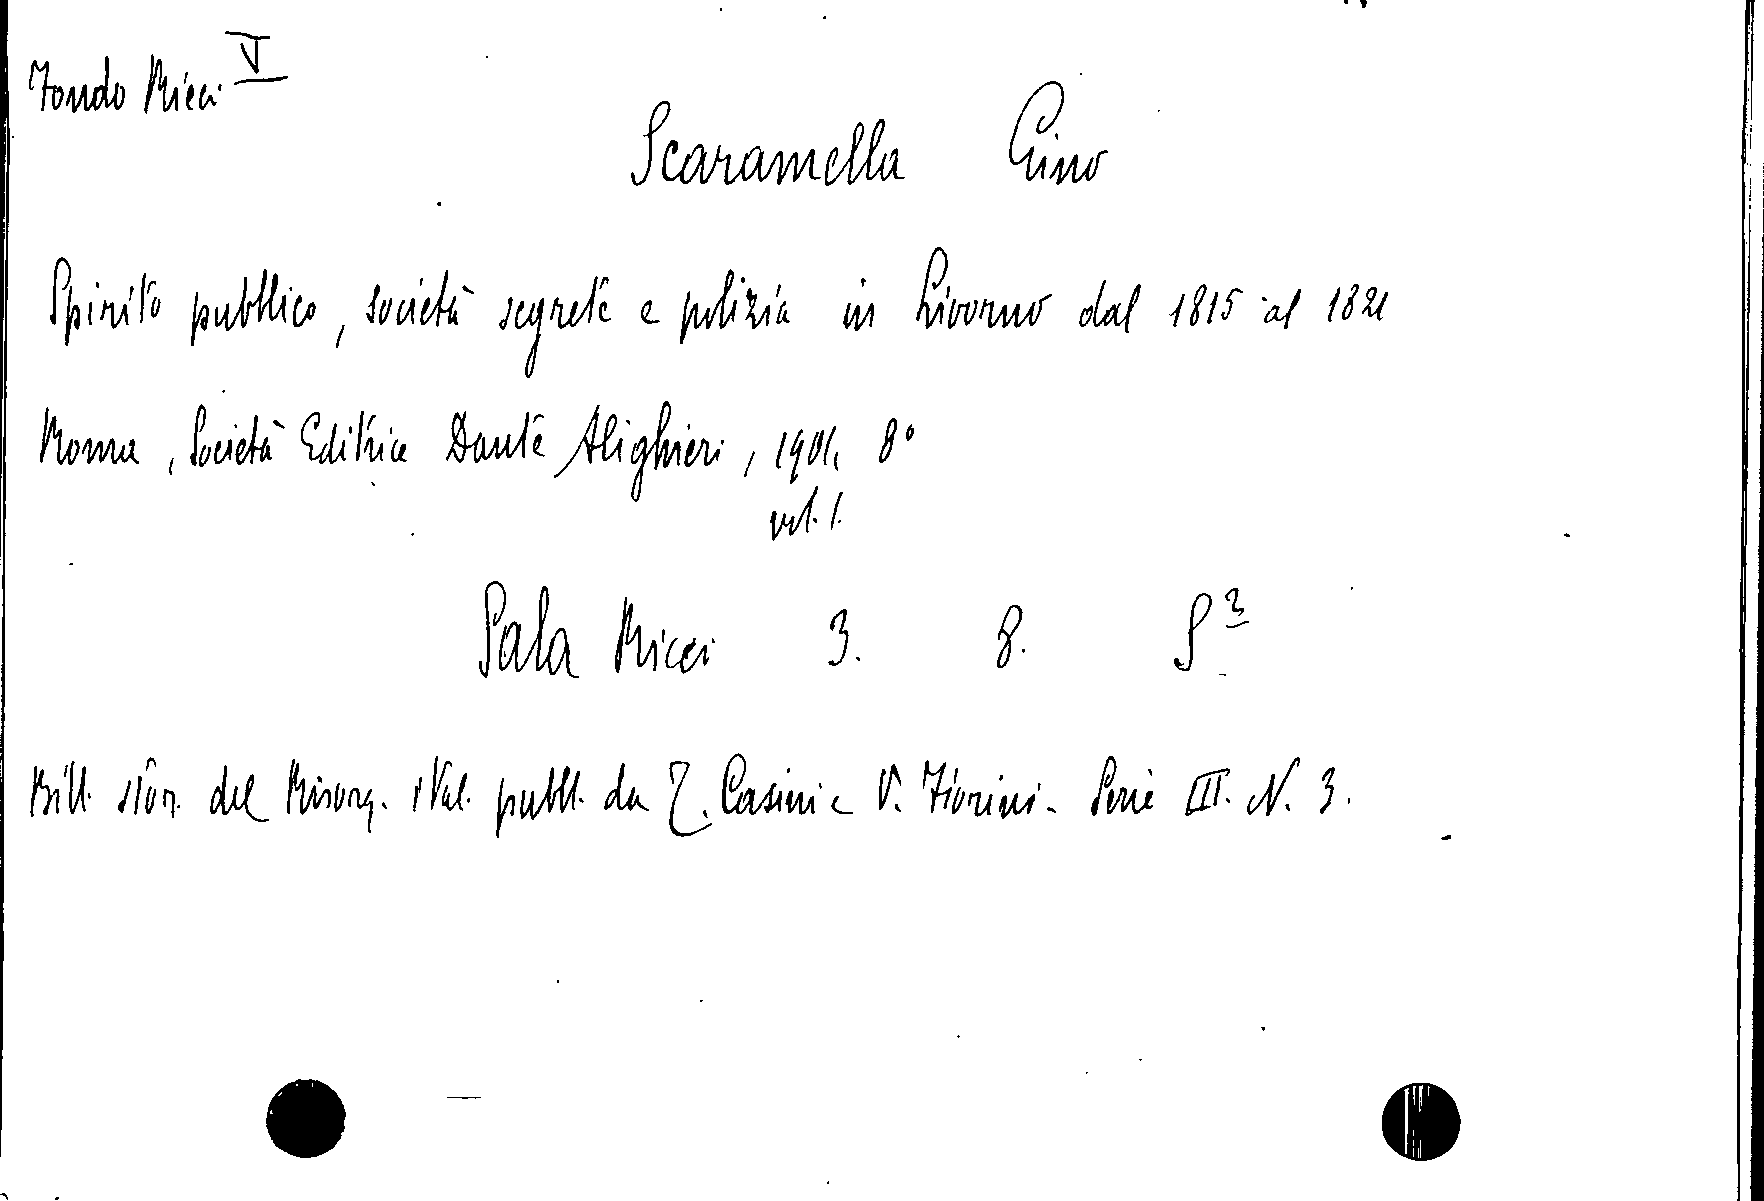 Fondo Ricci V
Scaramella Gino
Spirito pubblico, società segrete e polizia in Livorno dal 1815 al 1821
Roma, Società Editrice Dante Alighieri, 1901, 8°
vol. 1.
Sala Ricci 3. 8. S²
Bibl. stor. del Risorg. ital. pubbl. da T. Casini e V. Fiorini. Serie III. N. 3.